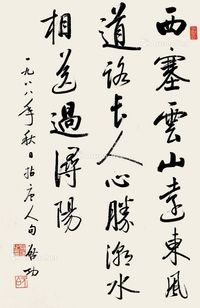 西塞雲山遠東風
道路長人心勝潮水
相送過潯陽
一九八八年秋日拈唐人句 啓功